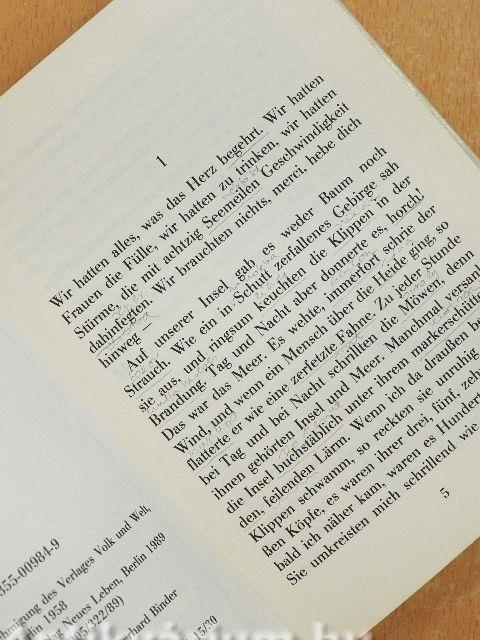 1
Wir hatten alles, was das Herz begehrt. Wir hatten
Frauen die Fülle, wir hatten zu trinken, wir hatten
Stürme, die mit achtzig Seemeilen Geschwindigkeit
dahinfegten. Wir brauchten nichts, merci, hebe dich
hinweg —
Auf unserer Insel gab es weder Baum noch
Strauch. Wie ein in Schutt zerfallenes Gebirge sah
sie aus, und ringsum keuchten die Klippen in der
Brandung. Tag und Nacht aber donnerte es, horch!
Das war das Meer. Es wehte, immerfort schrie der
Wind, und wenn ein Mensch über die Heide ging, so
flatterte er wie eine zerfetzte Fahne. Zu jeder Stunde
bei Tag und bei Nacht schrillten die Möwen, denn
ihnen gehörten Insel und Meer. Manchmal versank
die Insel buchstäblich unter ihrem markerschütte
den, feilenden Lärm. Wenn ich da draußen be
Klippen schwamm, so reckten sie unruhig
ßen Köpfe, es waren ihrer drei, fünf, zeh
bald ich näher kam, waren es Hundert
Sie umkreisten mich schrillend wie
5
355-00984-9
hmigung des Verlages Volk und Welt,
rlin 1958
lag Neues Leben, Berlin 1989
05/322/89)
erhard Binder
15/30